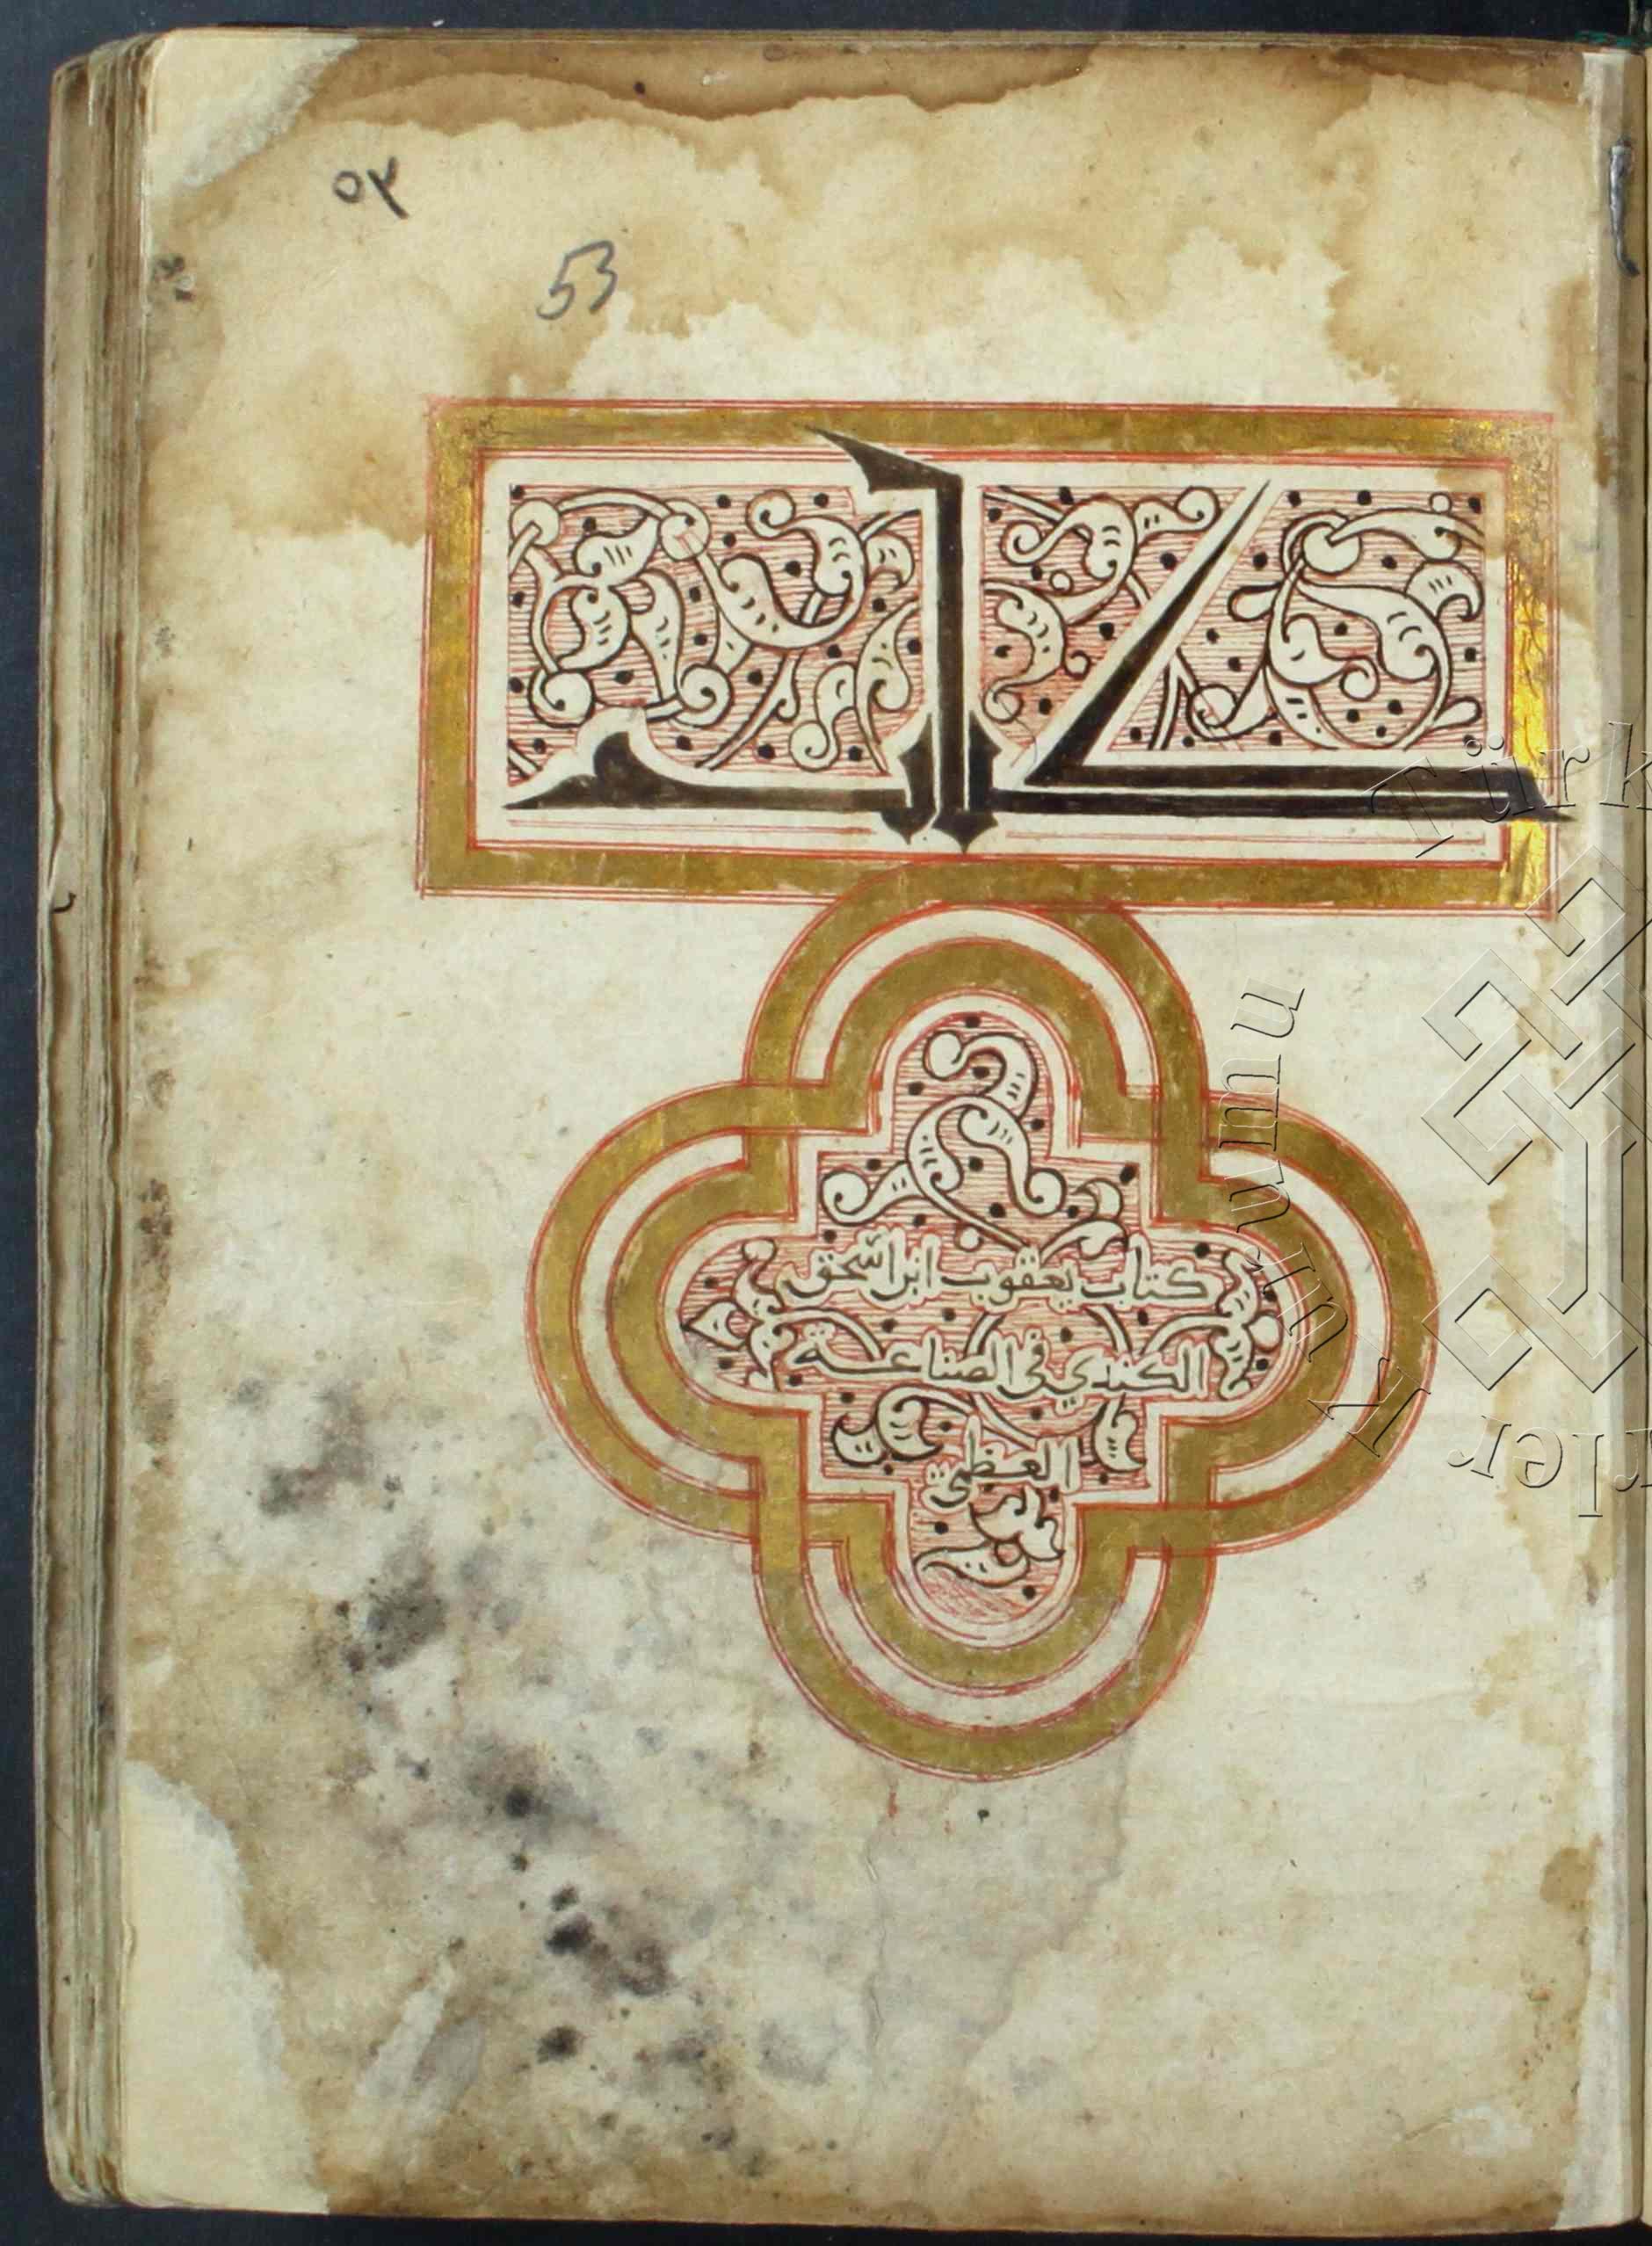 ٥٣
53
كتاب
كتاب يعقوب ابن اسحق
الكندي في الصناعة
العظمى
Türk
Kurumu